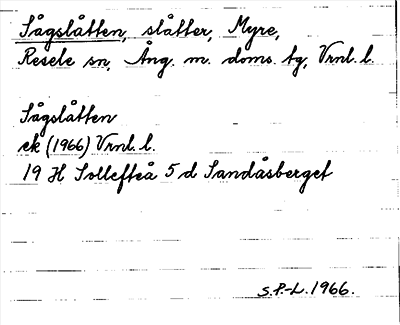 Sågslåtten, slåtter, Myre,
Resele sn, Ång. m. doms. tg, Vrnl. l.
Sågslåtten
ek (1966) Vrnl. l.
19 H Sollefteå 5 d Sandåsberget
S.P.-L. 1966.